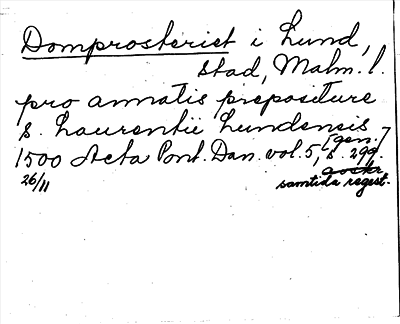 Domprosteriet i Lund,
stad, Malm. l.
pro annatis prepositure
s. Laurentii Lundensis [gen.]
1500 Acta Pont. Dan. vol. 5, s. 299.
26/11 avskr.
samtida regest.